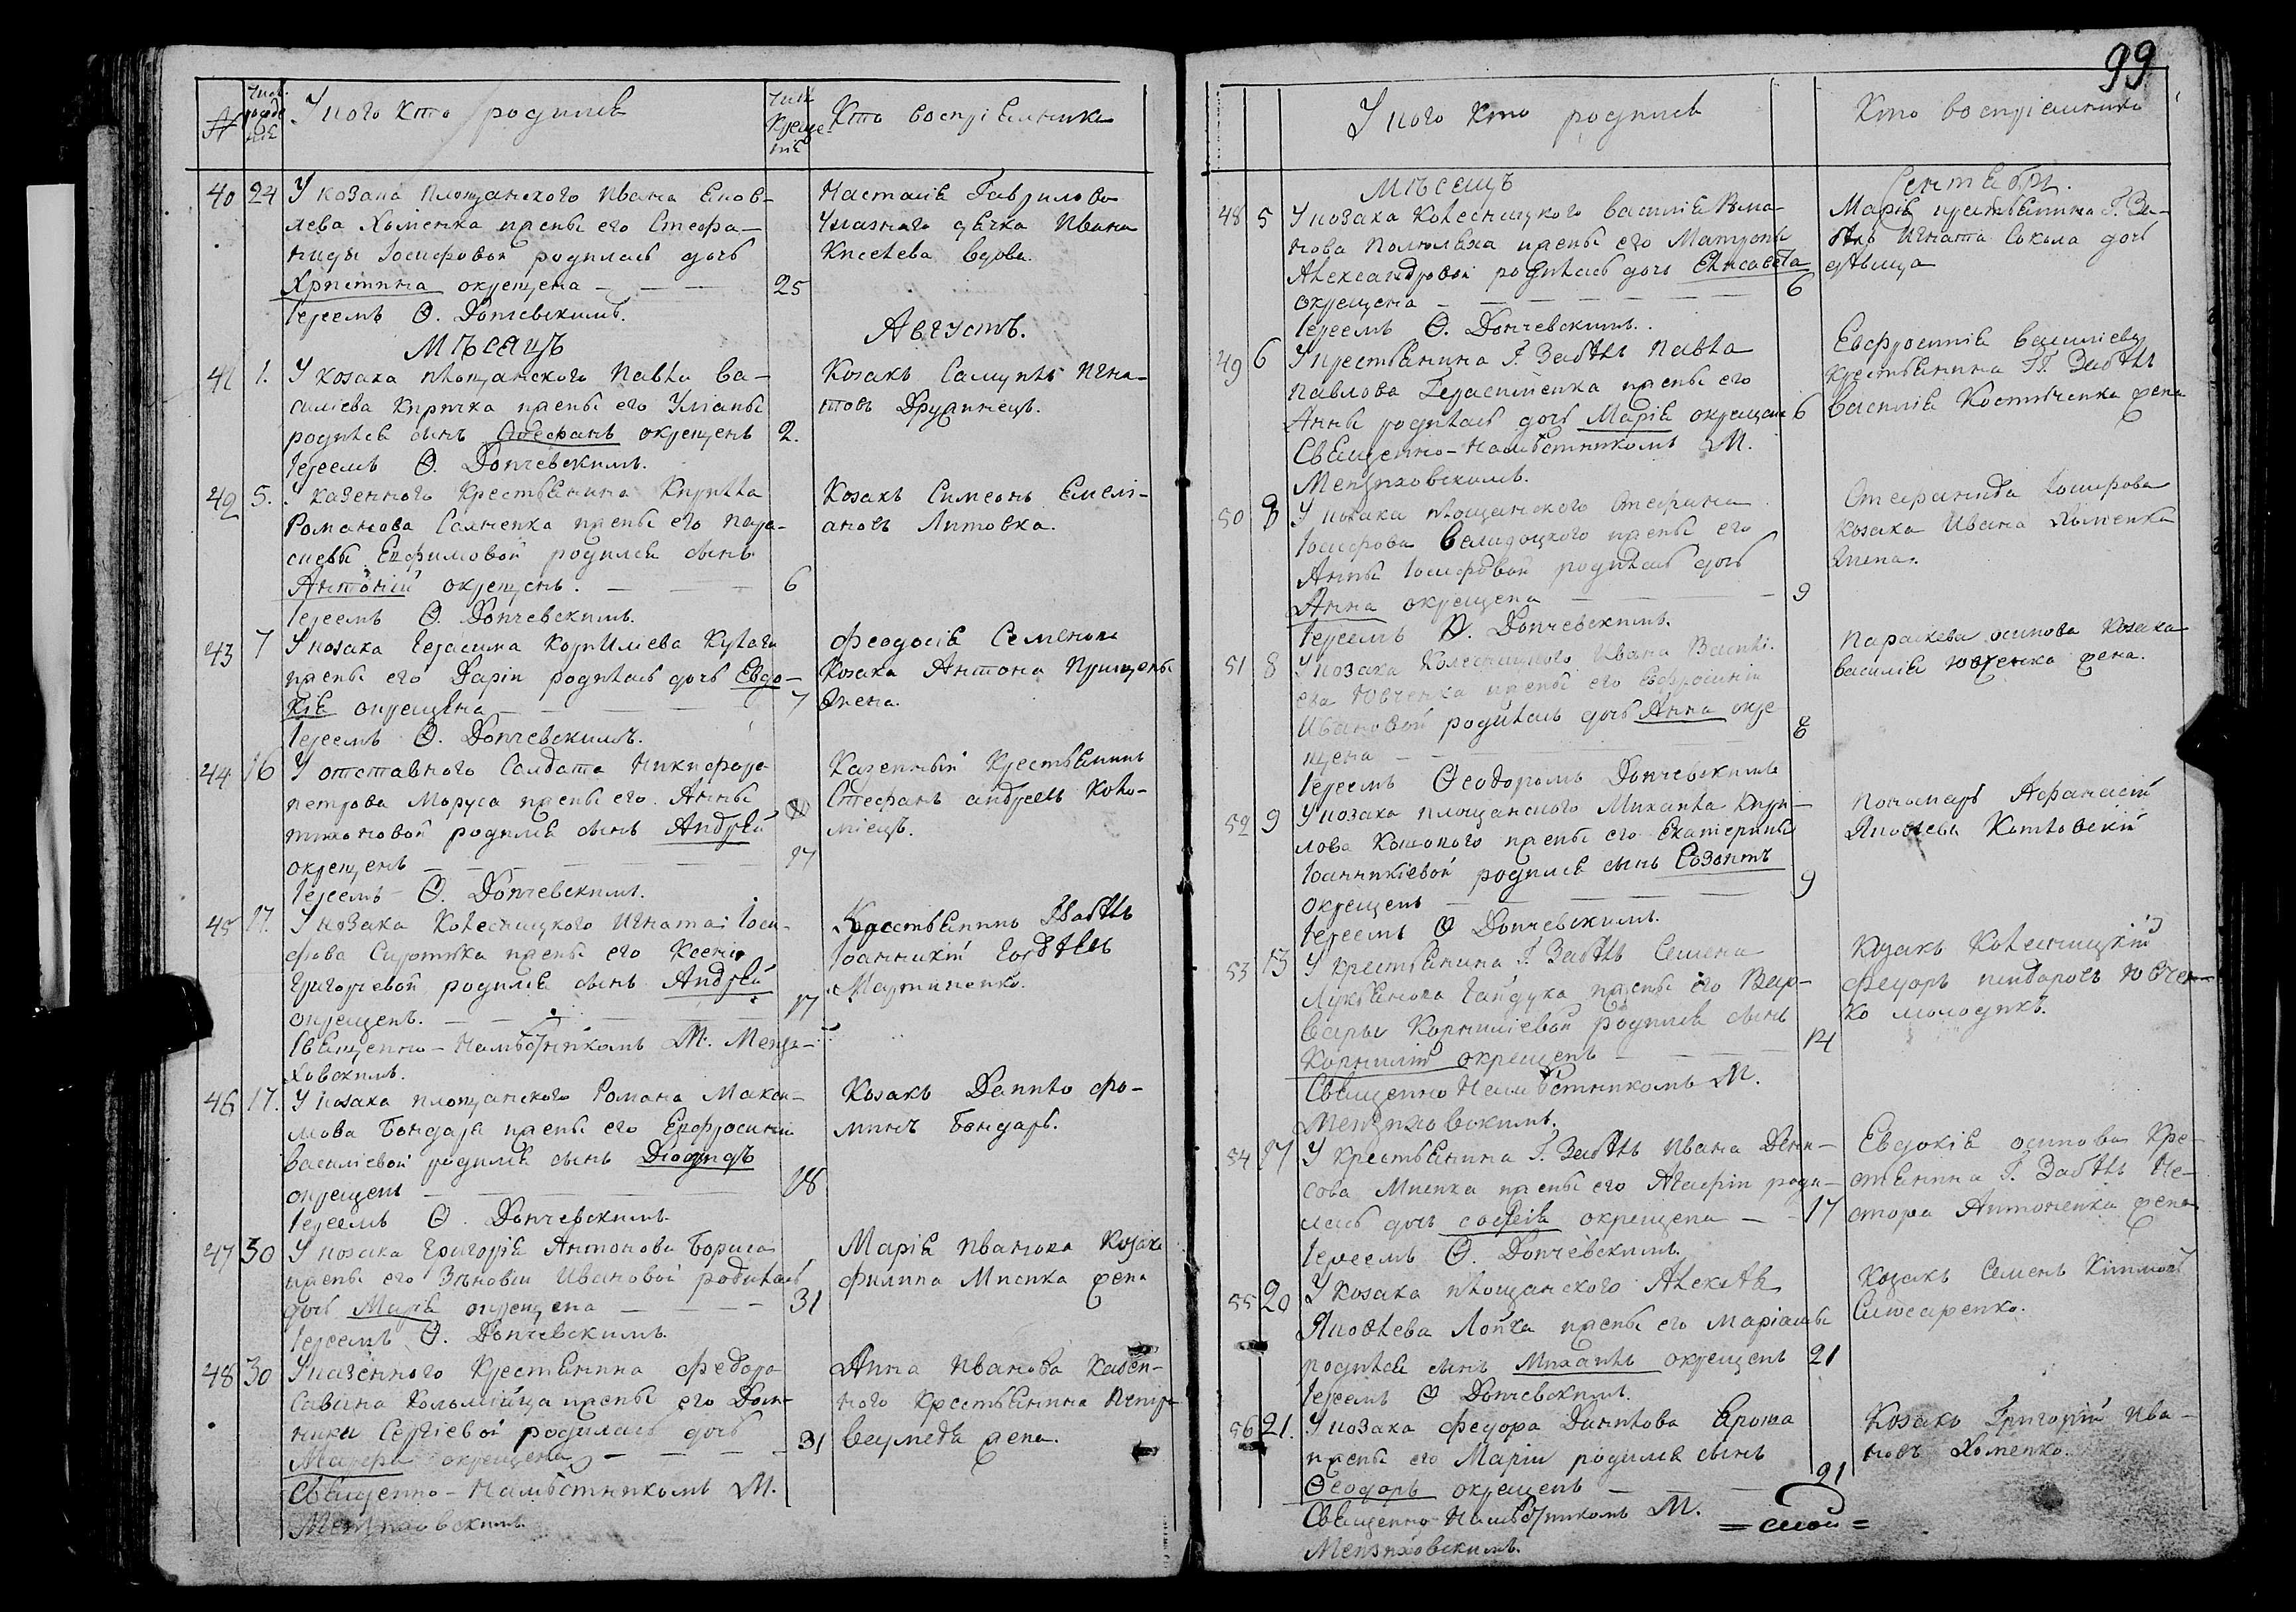 99
№
Числ. рожде нія
У кого кто родился
Числ. креще нія
Кто воспріемники
40 24 У козака площанскаго Ивана
лева Хоменка жены его Стефа-
ниды Іосифовой родилась дочь
Христина окрещена — — — 25
Іереемъ Ѳ. Дончевскимъ.
Наталія Гаврилова
дячка Ивана
вдова.
Мѣсяцъ Августъ.
41 1. У козака площанскаго Павла Ва-
силіева Киричка жены его Уліаны
родился сынъ Стефанъ окрещенъ 2.
Іереемъ Ѳ. Дончевскимъ.
Козакъ Самуилъ Игна-
товъ
42 5. У казенного Крестьянина Кирилла
Романова жены его пара-
скевы Ефимовой родился сынъ
Антоній окрещенъ. — — — 6
Іереемъ Ѳ. Дончевскимъ.
Козакъ Симеонъ Емелі-
ановъ Литовка.
43 7 У козака Герасима Корнилиева Кулаги
жены его Даріи родилась дочь Евдо-
кія окрещена — — — 7
Іереемъ Ѳ. Дончевскимъ.
Феодосія Семенова
Козака Антона
жена.
44 16 У отставного Солдата Никифора
петрова Моруса жены его Анны
тихоновой родился сынъ Андрей
окрещенъ — — — 17
Іереемъ Ѳ. Дончевскимъ.
Казенный Крестьянинъ
Стефанъ андреевъ Коло-
міецъ.
45 17. У козака Колесницкого Игната Іоси-
фова Сиротюка жены его Ксеніи
Григорьевой родился сынъ Андрей
окрещенъ. — — — 17
Священно-Намѣстникомъ М. Менжи-
ховскимъ.
Крестьянинъ
Іоанникій Гордѣевъ
Мартиненко.
46 17. У козака площанского Романа Макси-
мова Бондаря жены его Евфросиніи
василіевой родился сынъ Діомидъ
окрещенъ — — — 18
Іереемъ Ѳ. Дончевскимъ.
Козакъ Данило фо-
минъ Бондарь.
47 30 У козака Григорія Антонова Бориса
жены его Зѣновіи Ивановой родилась
дочь Марія окрещена — — — 31
Іереемъ Ѳ. Дончевскимъ.
Марія Иванова Козака
филипа Мисика жена
48 30 У казенного Крестьянина Федора
Савина Коломійца жены его Дом-
ники Сергіевой родилась дочь
Марфа окрещена — — — 31
Священно-Намѣстникомъ М.
Менжиховскимъ.
Анна Иванова Казен-
ного Крестьянина Петра
жена.
У кого кто родился
Кто воспріемники
Мѣсяцъ Сентябрь.
48 5 У козака Колесницкого Василія
нова жены его Матроны
Александровой родилась дочь Елисавета
окрещена — — — 6
Іереемъ Ѳ. Дончевскимъ.
Марія крестьянина Г. За-
Игната Сокола дочь
дѣвица
49 6 У крестьянина Г. Павла
Павлова Герасименка жены его
Анны родилась дочь Марія окрещена 6
Священно-Намѣстникомъ М.
Менжиховскимъ.
Евфросинія василіева
Крестьянина Г.
василія жена
50 8 У козака площанского Стефана
Іосифова жены его
Анны Іосифовой родилась дочь
Анна окрещена — — — 9
Іереемъ Ѳ. Дончевскимъ.
Стефанида Іосифова
козака Ивана Хоменка
жена.
51 8 У козака Колесницкого Ивана Василі-
ева Ювченка жены его Евфросиніи
Ивановой родилась дочь Анна окре-
щена — — — 8
Іереемъ Ѳеодоромъ Дончевскимъ
Параскева осипова козака
василія Ювченка жена.
52 9 У козака площанского Михаила Кири-
лова жены его Екатерины
Іоанникіевой родился сынъ Созонтъ
окрещенъ — — — 9
Іереемъ Ѳ Дончевскимъ.
Пономарь Афанасій
Яковлевъ Котловскій
53 13 У Крестьянина Г. Семена
Лукьянова Гайдука жены его Вар-
вары Корниліевой родился сынъ
Корнилій окрещенъ — — — 14
Священно Намѣстникомъ М.
Менжиховскимъ.
Козакъ Колесницкій
Федоръ Ювчен-
ко молодикъ.
54 17 У Крестьянина Г. Ивана Дени-
сова Мисика жены его Агафіи роди-
лась дочь софія окрещена — — 17
Іереемъ Ѳ. Дончевскимъ.
Евдокія осипова Кре-
стянина Г. Не-
стора Антоненка жена
55 20 У козака площанского Алексѣя
Яковлева Лойка жены его маріаны
родился сынъ Михаилъ окрещенъ 21
Іереемъ Ѳ Дончевскимъ.
Козакъ Семенъ
Слюсаренко.
56 21. У козака Федора Данилова Ероша
жены его Маріи родился сынъ
Ѳеодоръ окрещенъ — — — 21
Священно-Намѣстникомъ М.
Менжиховскимъ.
Козакъ Григорій Ива-
новъ Хоменко.